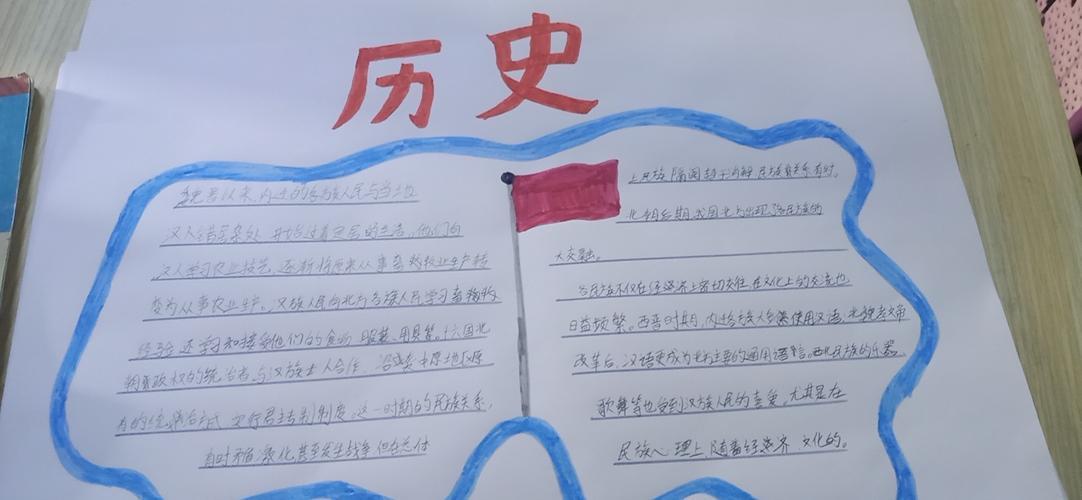 历史
魏晋以来,内迁的各族人民与当地
汉人错居杂处 开始过着定居的生活。他们向
汉人学习农业技艺,逐渐将原来从事畜牧业生产转
变为从事农业生产。汉族人民向北方各族人民学习畜牧的
经验 还学习和接受他们的食物 服装、用具等。十六国北
朝政权的统治者与汉族士人合作 沿袭中原地区原
有的统治方式 实行君主制制度。这一时期的民族关系,
有时矛盾激化甚至发生战争 但在总体
上民族隔阂趋于消解 民族关系有时,
北朝后期,我国北方出现 各民族的
大交融。
各民族不仅在经济上密切交往,在文化上的交流也
日益频繁。西晋时期,内迁各族大多使用汉语,北魏孝文帝
改革后,汉语更成为北方主要的通用语言。西北民族的乐器、
歌舞等也受到汉族人民的喜爱,尤其是在
民族心理上 随着经济 文化的。